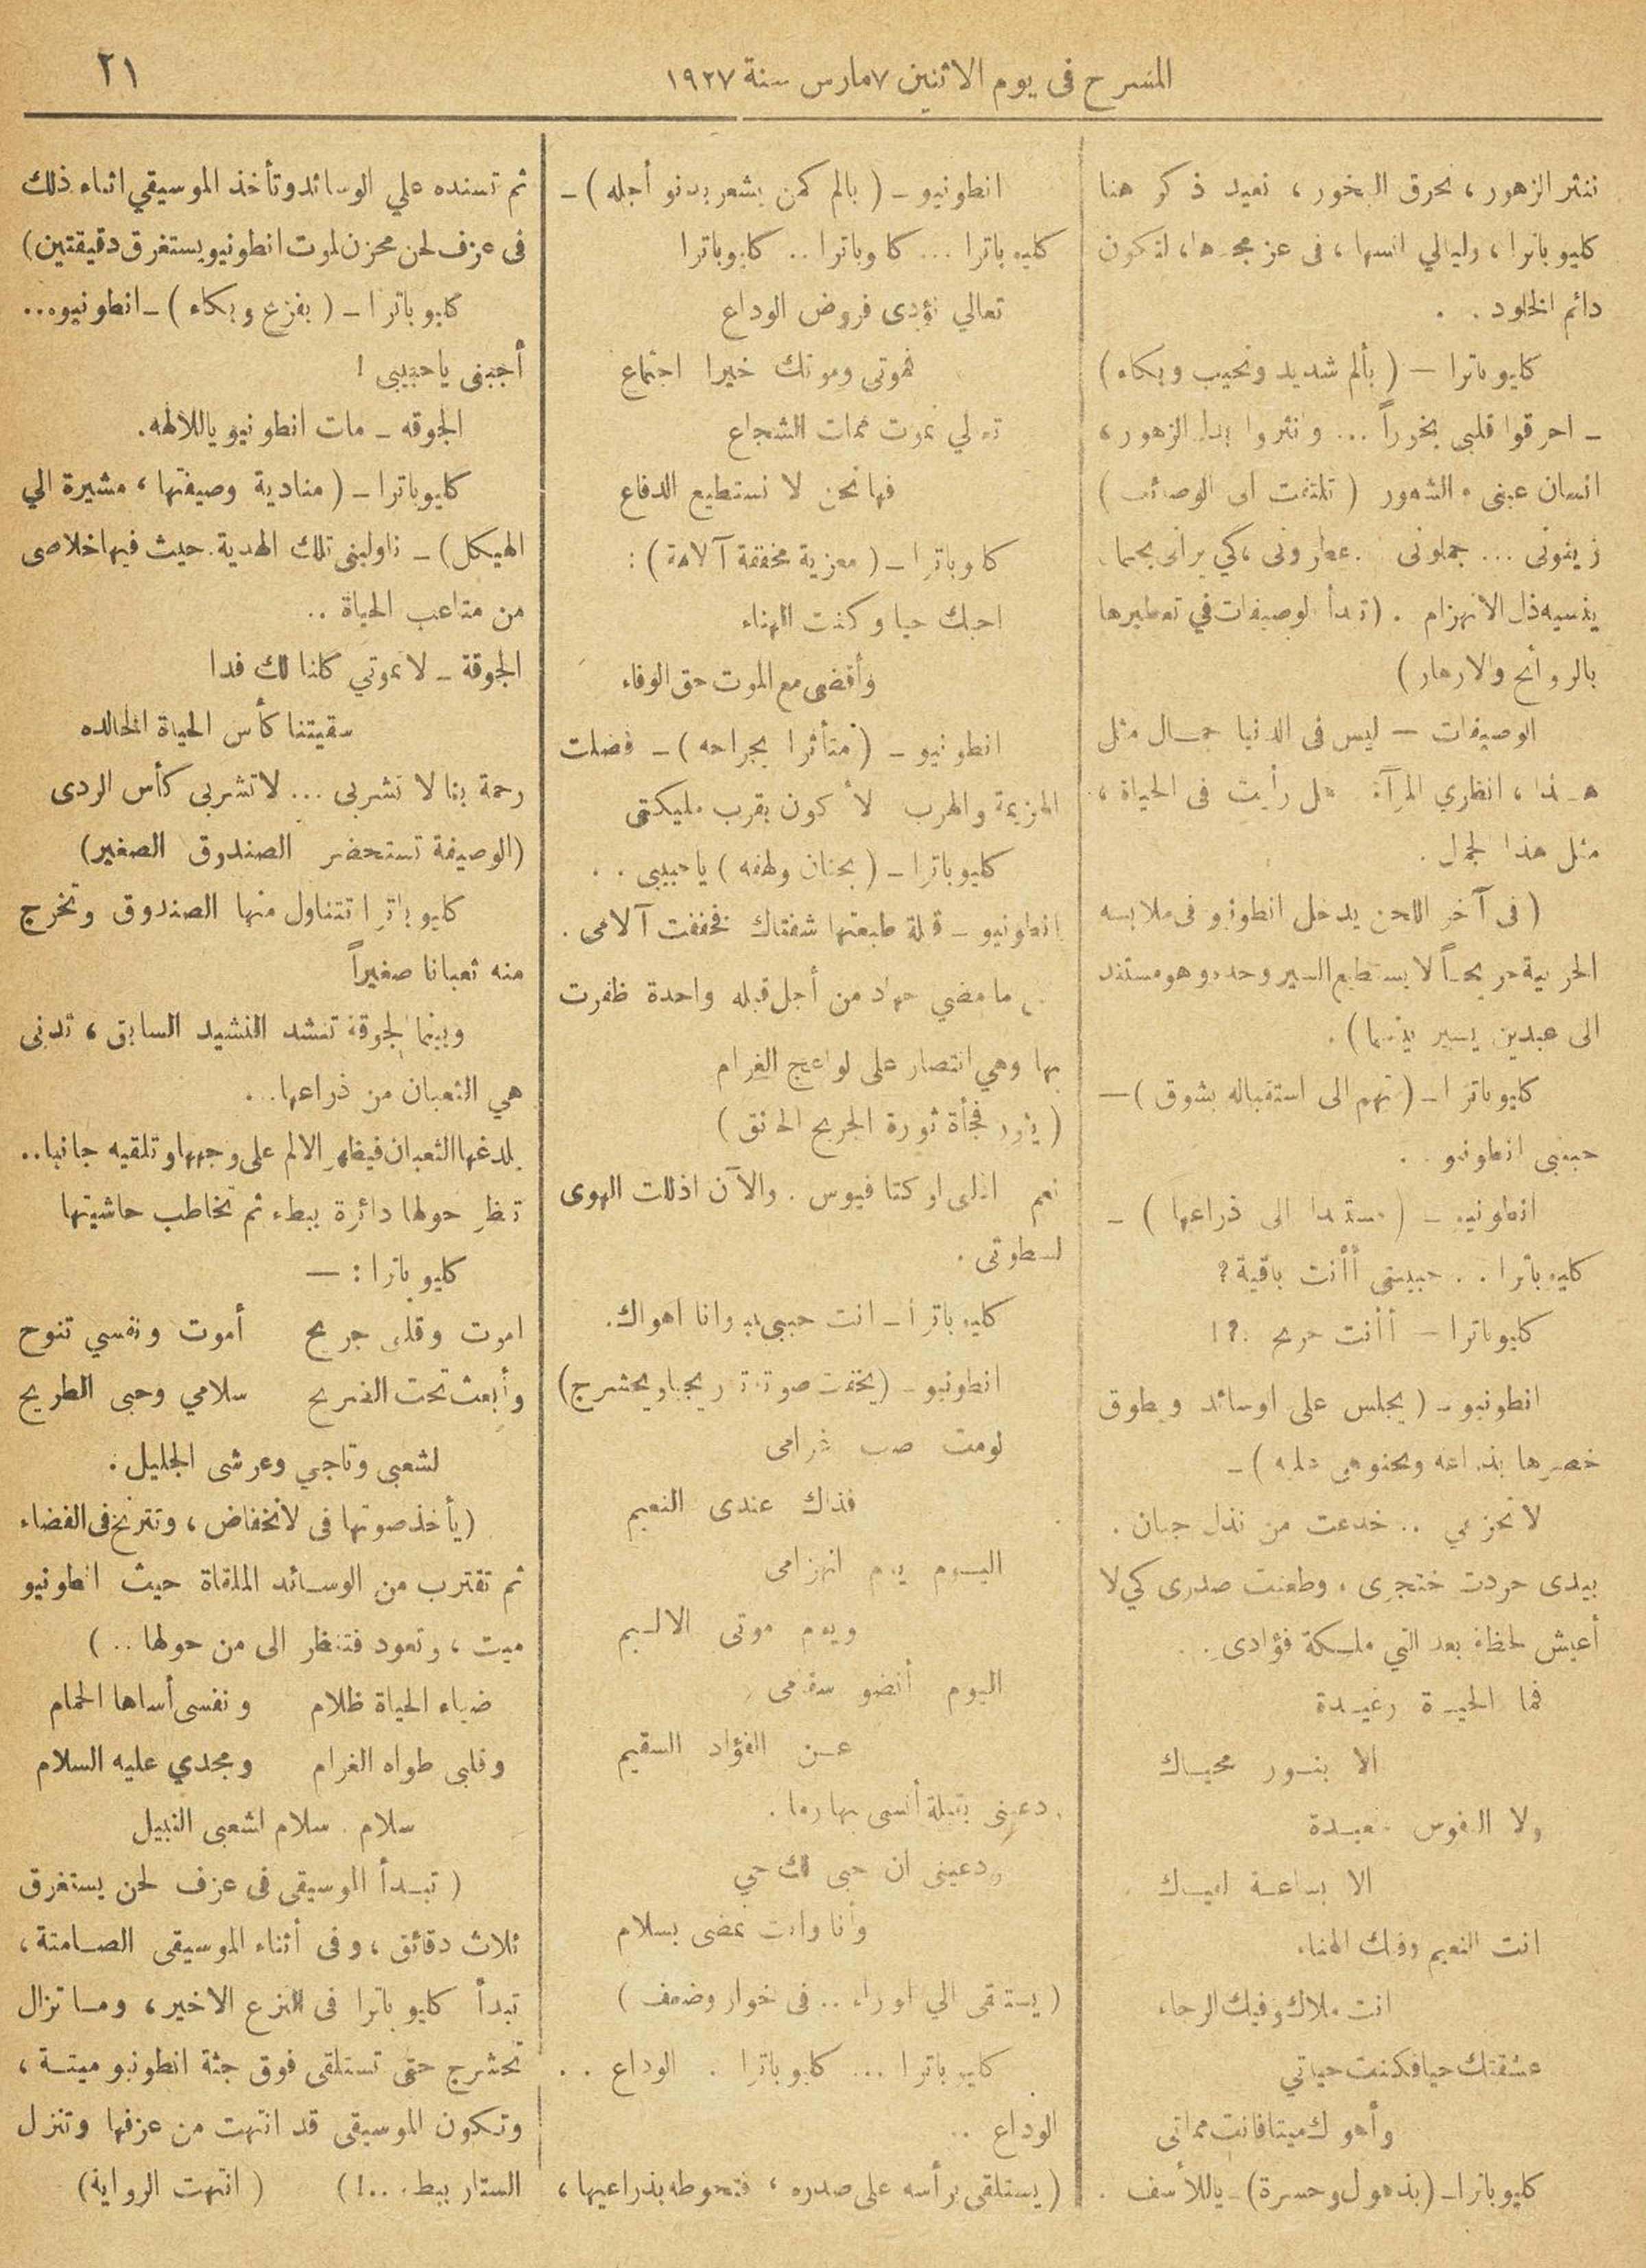 المسرح فى يوم الاثنين ٧ مارس سنة ١٩٢٧
٢١
ننثر الزهور ، نحرق البخور ، نعيد ذكر هنا
كليوباترا ، وليالي انسها ، فى عز مجدها ، لتكون
دائم الخلود . .
كليوباترا — ( بألم شديد ونحيب وبكاء )
ـ احرقوا قلبى بخوراً ... وانثروا بدل الزهور ،
انسان عينى الشهور ( تلتفت الى الوصائف )
زينونى ... جملونى . عطرونى ، كي يرانى بجمال
ينسيه ذل الانهزام . ( تبدأ الوصيفات في تعطيرها
بالروائح والازهار )
الوصيفات — ليس فى الدنيا جمال مثل
هذا ، انظري المرآة هل رأيت فى الحياة ،
مثل هذا الجمال .
( فى آخر اللحن يدخل انطونيو فى ملابسه
الحربية جريحاً لا يستطيع السير وحده وهو مستند
الى عبدين يسير بينهما ) .
كليوباترا ـ ( تهم الى استقباله بشوق ) —
حبيبى انطونيو . .
انطونيو ـ ( مستندا الى ذراعها ) ـ
كليوباترا . . حبيبتى أأنت باقية ؟
كليوباترا — أأنت جريح . ؟ !
انطونيو ـ ( يجلس على الوسائد ويطوق
خصرها بذراعه وتحنو هى عليه ) ـ
لا تحزني .. خدعت من نذل جبان .
بيدى جردت خنجرى ، وطعنت صدرى كي لا
أعيش لحظة بعد التي ملكة فؤادى . .
فما الحياة رغيدة
الا بنور محياك
ولا النفوس سعيدة
الا بساعة لقياك
انت النعيم وفيك الهناء
انت ملاك وفيك الرجاء
عشقتك حيا فكنت حياتي
وأهوك ميتا فانت مماتى
كليوباترا ـ ( بذهول وحسرة ) ـ ياللأسف .
انطونيو ـ ( بالم كمن يشعر بدنو أجله ) ـ
كليوباترا ... كليوباترا .. كليوباترا
تعالي نؤدى فروض الوداع
فموتى وموتك خيرا اجتماع
تعالي نموت ممات الشجاع
فها نحن لا نستطيع الدفاع
كليوباترا ـ ( معزية مخففة آلامه ) :
احبك حيا وكنت الهناء
وأقضى مع الموت حق الوفاء
انطونيو ـ ( متأثرا بجراحه ) ـ فضلت
الهزيمة والهرب لأكون بقرب مليكتى
كليوباترا ـ ( بحنان ولهفه ) ياحبيبى . .
انطونيو ـ قبلة طبعتها شفتاك فخففت آلامى .
ما مضي جهاد من أجل قبله واحدة ظفرت
بها وهي انتصار على لواعج الغرام
( يثور فجأة ثورة الجريح الحانق )
نعم اذلى اوكتافيوس . والآن اذللت الهوى
لسطوتى .
كليوباترا ـ انت حبيبى وانا اهواك .
انطونيو ـ ( يخفت صوته تدريجيا ويحشرج )
لومت صب غرامى
فذاك عندى النعيم
اليوم يوم انهزامى
ويوم موتى الاليم
اليوم أنضو سقامى
عن الفؤاد السقيم
دعينى بقبلة أنسى بها روما .
ودعينى ان حبى لك حي
وأنا وانت نمضى بسلام
( يستلقى الي الوراء .. فى خوار وضعف )
كليوباترا ... كليوباترا . الوداع . .
الوداع ..
( يستلقى برأسه على صدره ، فتحوطه بذراعيها ،
ثم تسنده علي الوسائد وتأخذ الموسيقي اثناء ذلك
فى عزف لحن محزن لموت انطونيو يستغرق دقيقتين )
كليوباترا ـ ( بفزع وبكاء ) ـ انطونيوه ...
أجبنى ياحبيبى !
الجوقه ـ مات انطونيو ياللالهه .
كليوباترا ـ ( منادية وصيفتها ، مشيرة الي
الهيكل ) ـ ناولينى تلك الهدية . حيث فيها خلاصى
من متاعب الحياة ..
الجوقة ـ لا تموتي كلنا لك فدا
سقيتنا كأس الحياة الخالده
رحمة بنا لا تشربى ... لا تشربى كأس الردى
( الوصيفة تستحضر الصندوق الصغير )
كليوباترا تتناول منها الصندوق وتخرج
منه ثعبانا صغيراً
وبينما الجوقة تنشد النشيد السابق ، تدنى
هي الثعبان من ذراعها . .
يلدغها الثعبان فيظهر الالم على وجهها وتلقيه جانبا ..
تنظر حولها دائرة ببطء ثم تخاطب حاشيتها
كليوباترا : —
اموت وقلبى جريح أموت ونفسي تنوح
وأبعث تحت الضريح سلامي وحبى الطريح
لشعبى وتاجي وعرشى الجليل .
( يأخذ صوتها فى الانخفاض ، وتترنح فى الفضاء
ثم تقترب من الوسائد الملقاة حيث انطونيو
ميت ، وتعود فتنظر الى من حولها .. )
ضياء الحياة ظلام ونفسى أساها الحمام
وقلبى طواه الغرام ومجدي عليه السلام
سلام . سلام لشعبى النبيل
( تبدأ الموسيقى فى عزف لحن يستغرق
ثلاث دقائق ، وفى أثناء الموسيقى الصامتة ،
تبدأ كليوباترا فى النزع الاخير ، وما تزال
تحشرج حتى تستلقى فوق جثة انطونيو ميتة ،
وتكون الموسيقى قد انتهت من عزفها وتنزل
الستار ببطء ..! ) ( انتهت الرواية )